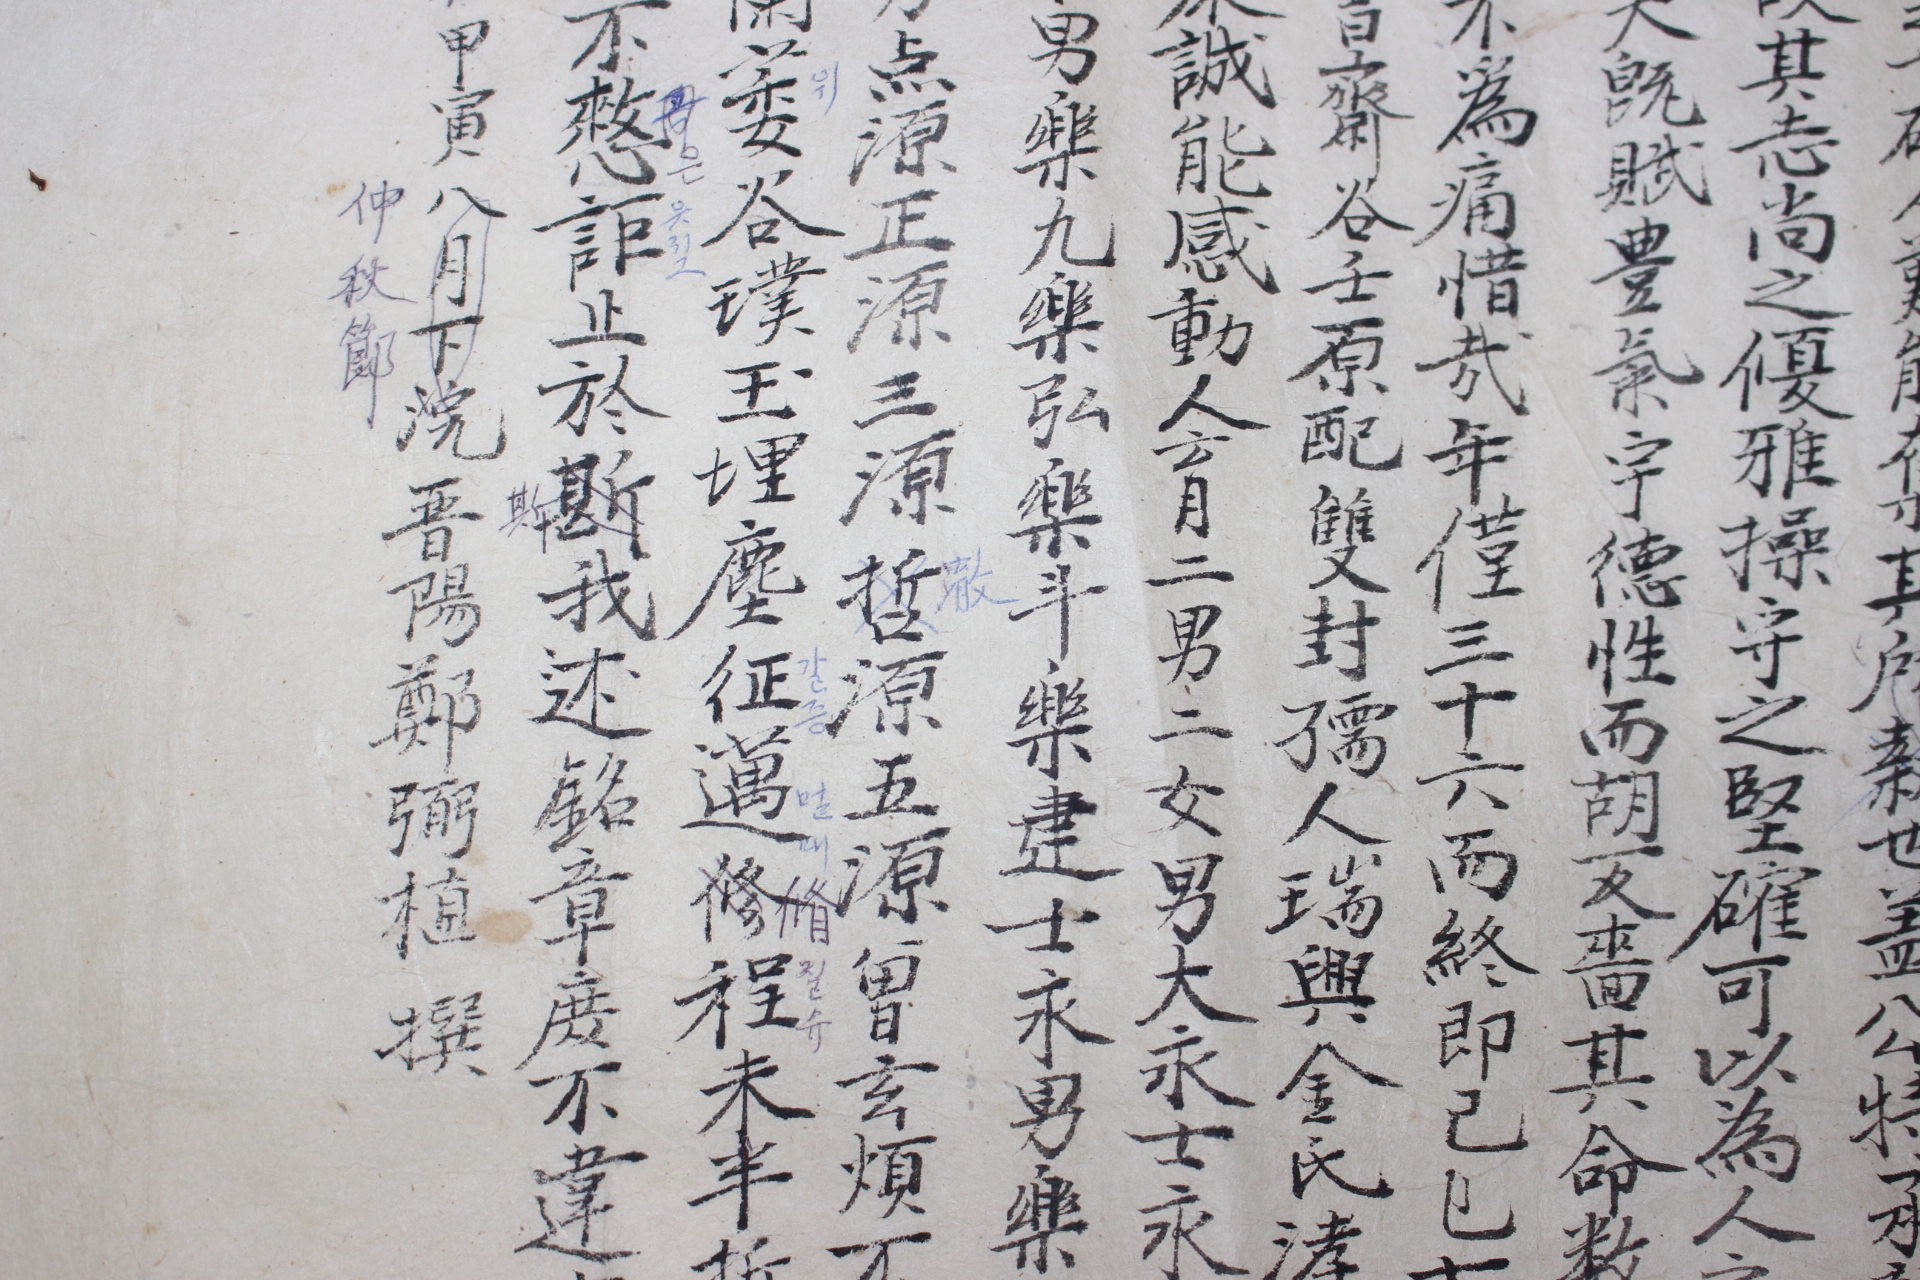 其志尚之優雅操守之堅確可以為人
天旣賦豊氣宇德性而胡不嗇其命数
不為痛惜哉年僅三十六而終即己巳十
齋谷壬原配雙封孺人瑞興金氏
誠能感動人六月二男二女男大永士永
男樂九樂弘樂斗樂建士永男樂
点源正源三源哲源五源曾玄煩不
徹
蘭萎谷璞玉埋塵征邁修程未半
위
갈 증
멀 매
脩
길 슈
不憗詎止於斯我述銘章庶不違
은
斯
甲寅八月下浣 晋陽鄭弼植 撰
仲秋節